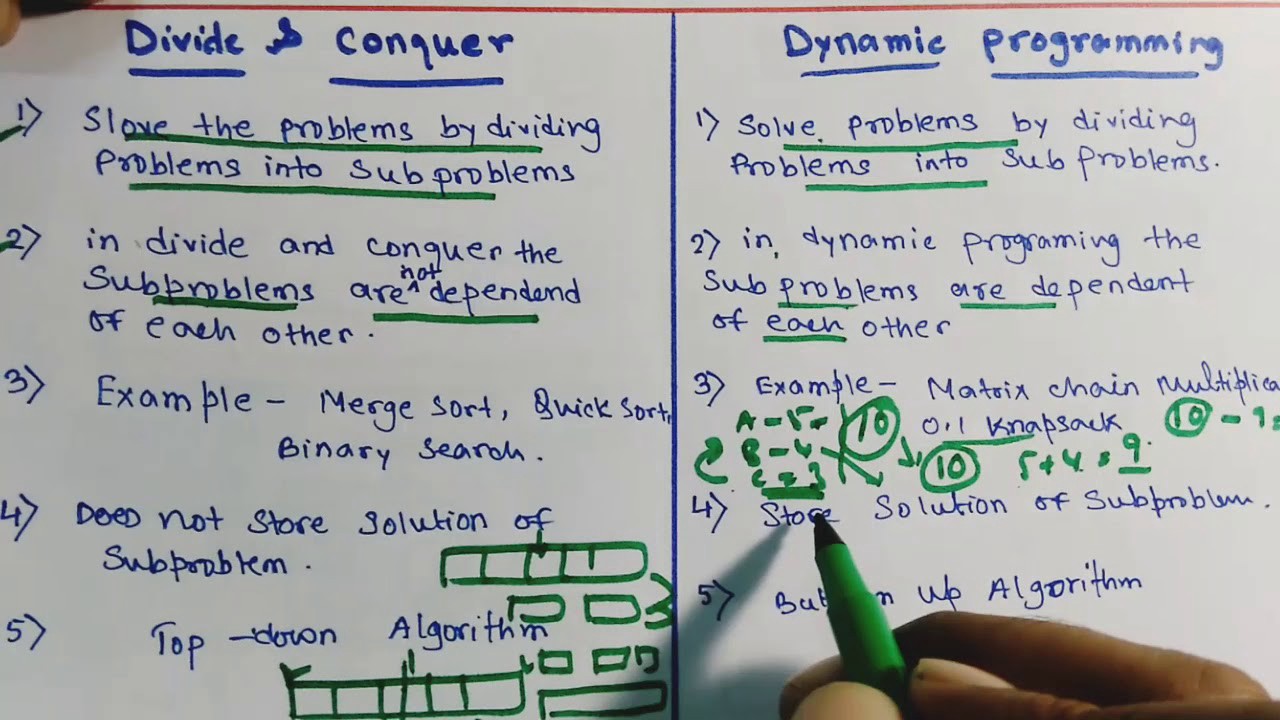 Divide & Conquer
1) Slove the problems by dividing
Problems into Subproblems
2) in divide and conquer the
not
Subproblems are ^ dependend
of each other.
3) Example - Merge sort, Quick sort,
Binary search.
4) Does not Store Solution of
Subproblem.
5) Top-down Algorithm
Dynamic programming
1) Solve problems by dividing
Problems into Subproblems.
2) in dynamic programing the
Subproblems are dependent
of each other
3) Example - Matrix chain multiplica
0.1 Knapsack
A - 5 -
B - 4
C = 3
10
10
5+4 = 9
10 - 9 =
4) Store Solution of Subproblem.
5) up Algorithm